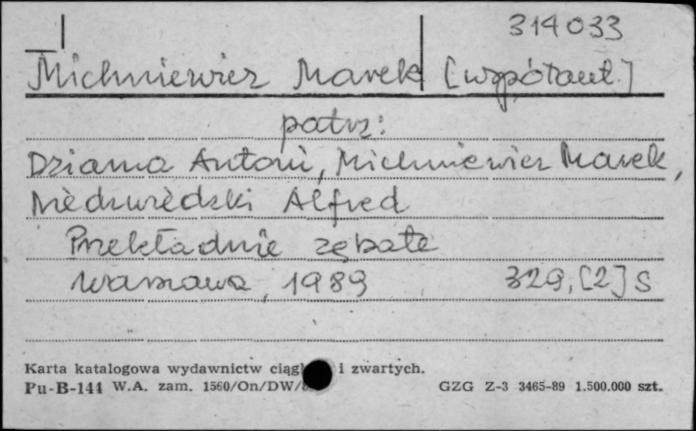 314033
Michniewicz Marek [współaut.]
patrz:
Dziama Antoni, Michniewicz Marek,
Niedźwiedzki Alfred
Przekładnie zębate
Warszawa, 1989 329,[2] s
Karta katalogowa wydawnictw i zwartych.
Pu-B-141 W.A. zam. 1560/On/DW/ GZG Z-3 3465-89 1.500.000 szt.